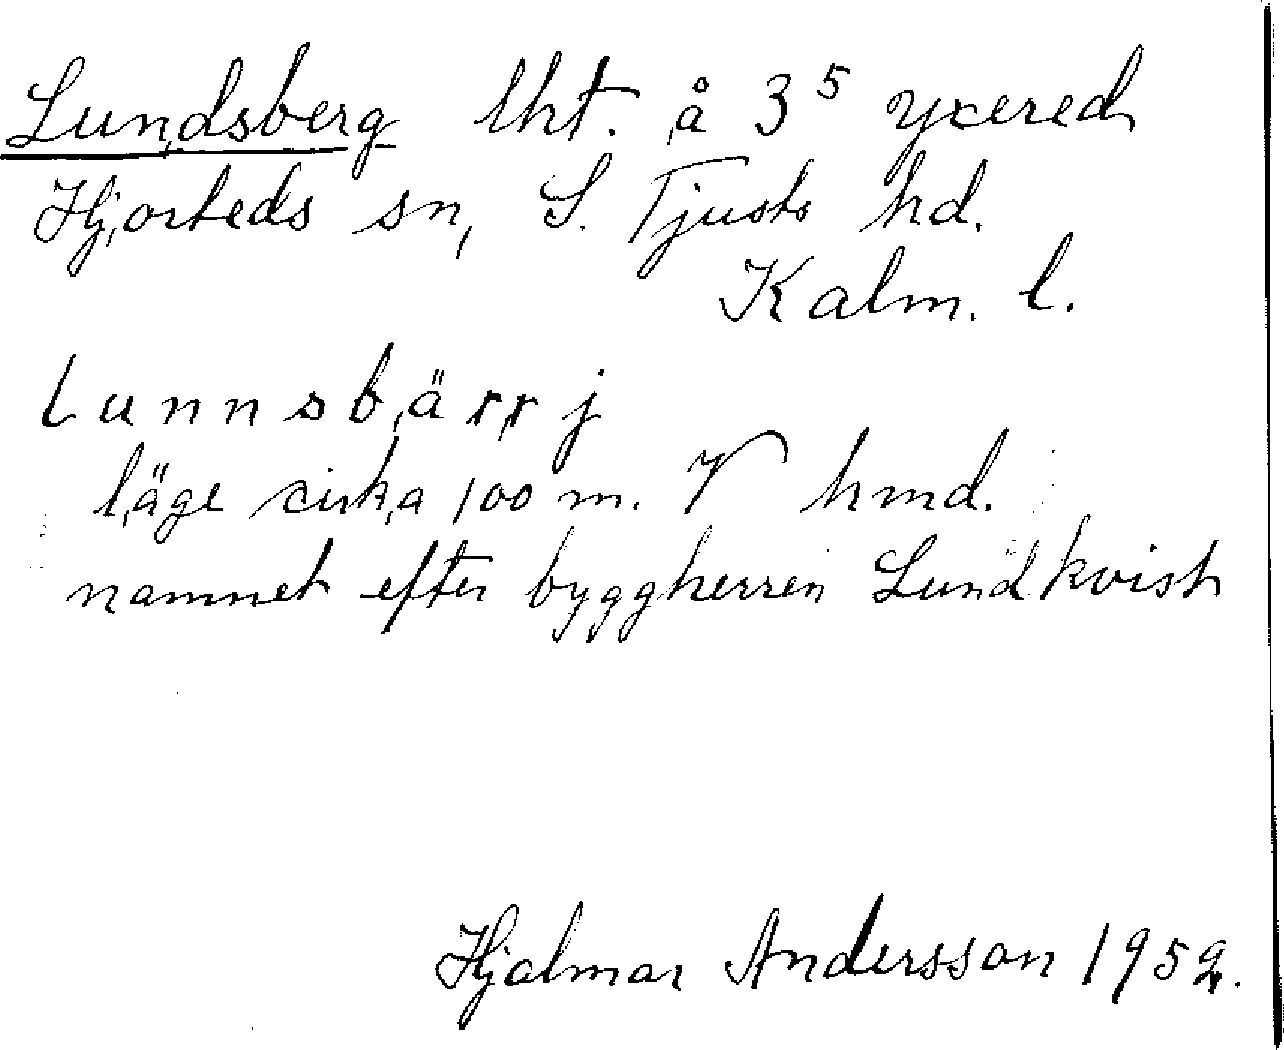 Lundsberg lht. å 3⁵ yxered
Hjorteds sn, S. Tjusts hd.
Kalm. l.
lunnsbärrj
läge cirka 100 m. V hmd.
namnet efter byggherren Lundkvist
Hjalmar Andersson 1952.